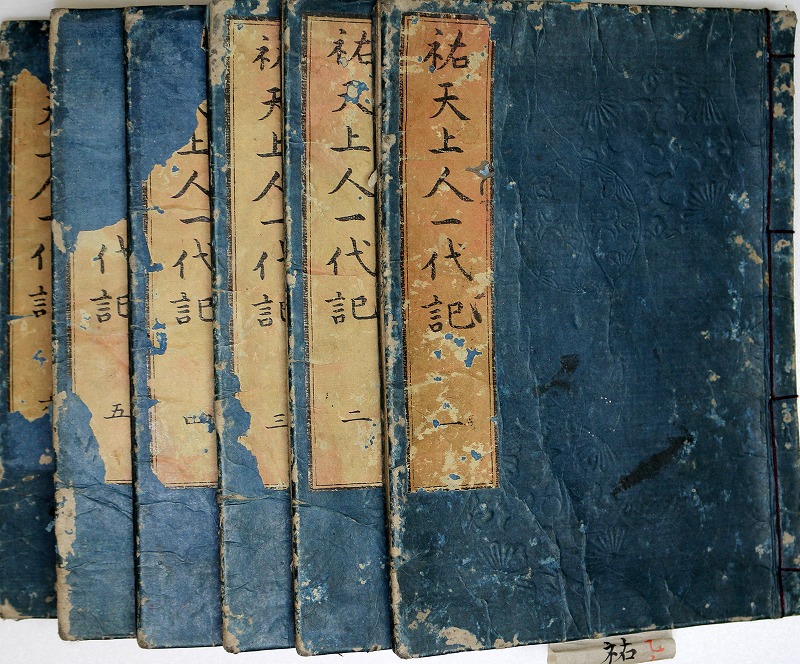 祐天上人一代記 一
祐天上人一代記 二
祐天上人一代記 三
上人一代記 四
代記 五
天上人一代記 六
祐